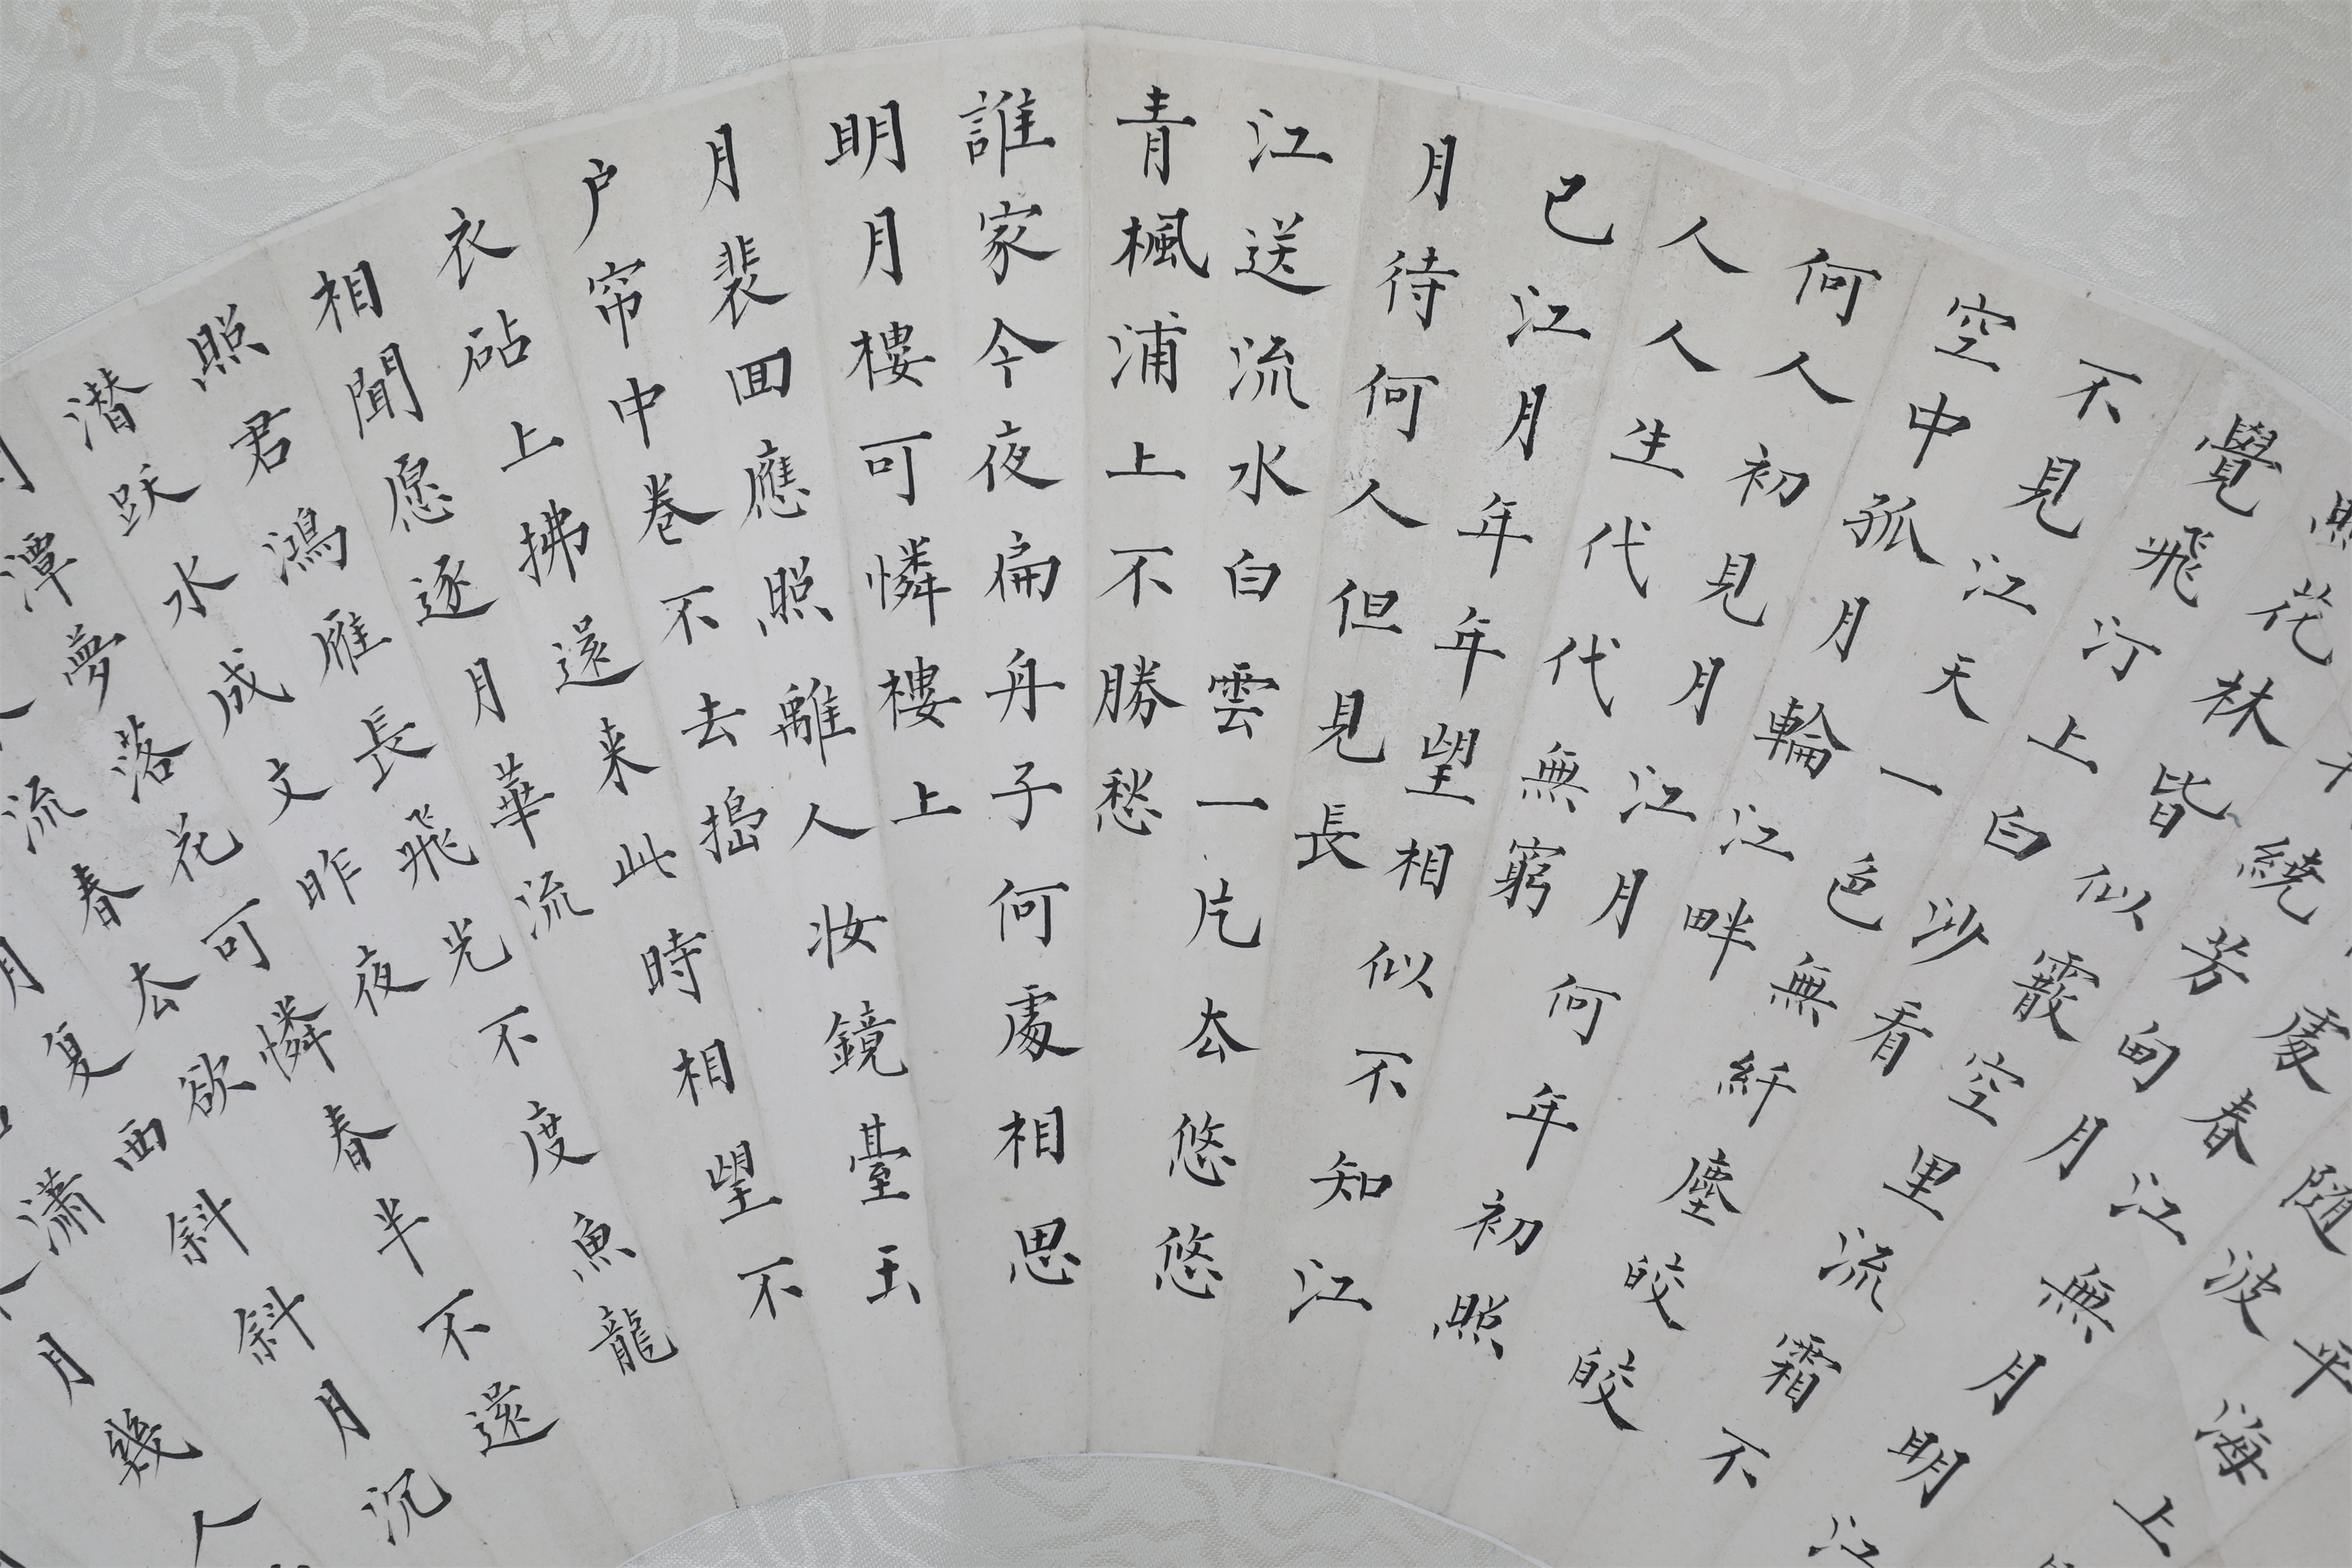 平海上
随波
處春江無月明江
繞芳甸月
照花林皆似霰空里流霜不
覺飛汀上白沙看
不見江天一色無纤塵皎皎
空中孤月輪江畔
何人初見月江月何年初照
人人生代代無窮
已江月年年望相似不知江
月待何人但見長
江送流水白雲一片厺悠悠
青楓浦上不勝愁
誰家今夜扁舟子何處相思
明月樓可憐樓上
月裴回應照離人妝鏡臺玉
户帘中卷不去搗
衣砧上拂還来此時相望不
相聞愿逐月華流
照君鴻雁長飛光不度魚龍
潜跃水成文昨夜
潭夢落花可憐春半不還
流春厺欲
月复西斜斜月沉
潇
月幾人